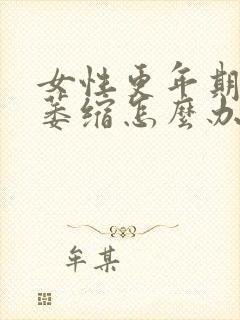 女性更年期
萎缩怎麽办
牟某